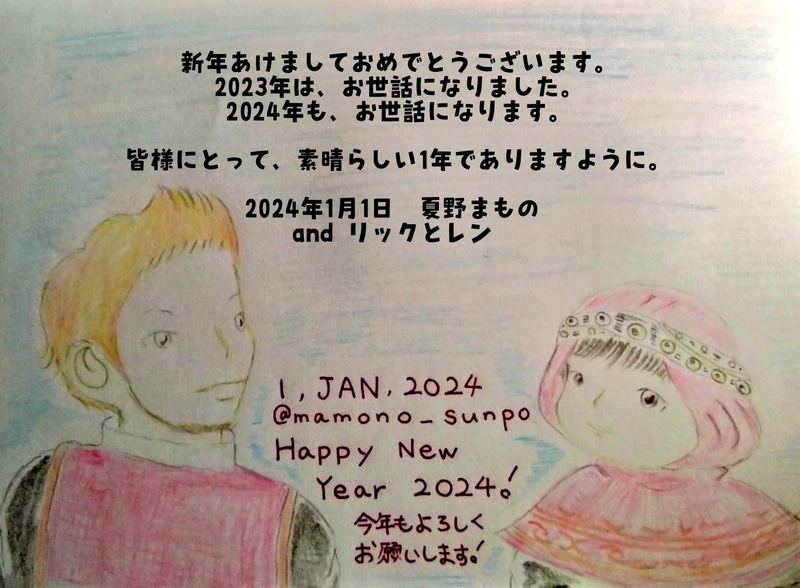 新年あけましておめでとうございます。
2023年は、お世話になりました。
2024年も、お世話になります。
皆様にとって、素晴らしい1年でありますように。
2024年1月1日　夏野まもの
and リックとレン
1, JAN. 2024
@mamono_sunpo
Happy New
Year 2024!
今年もよろしく
お願いします!